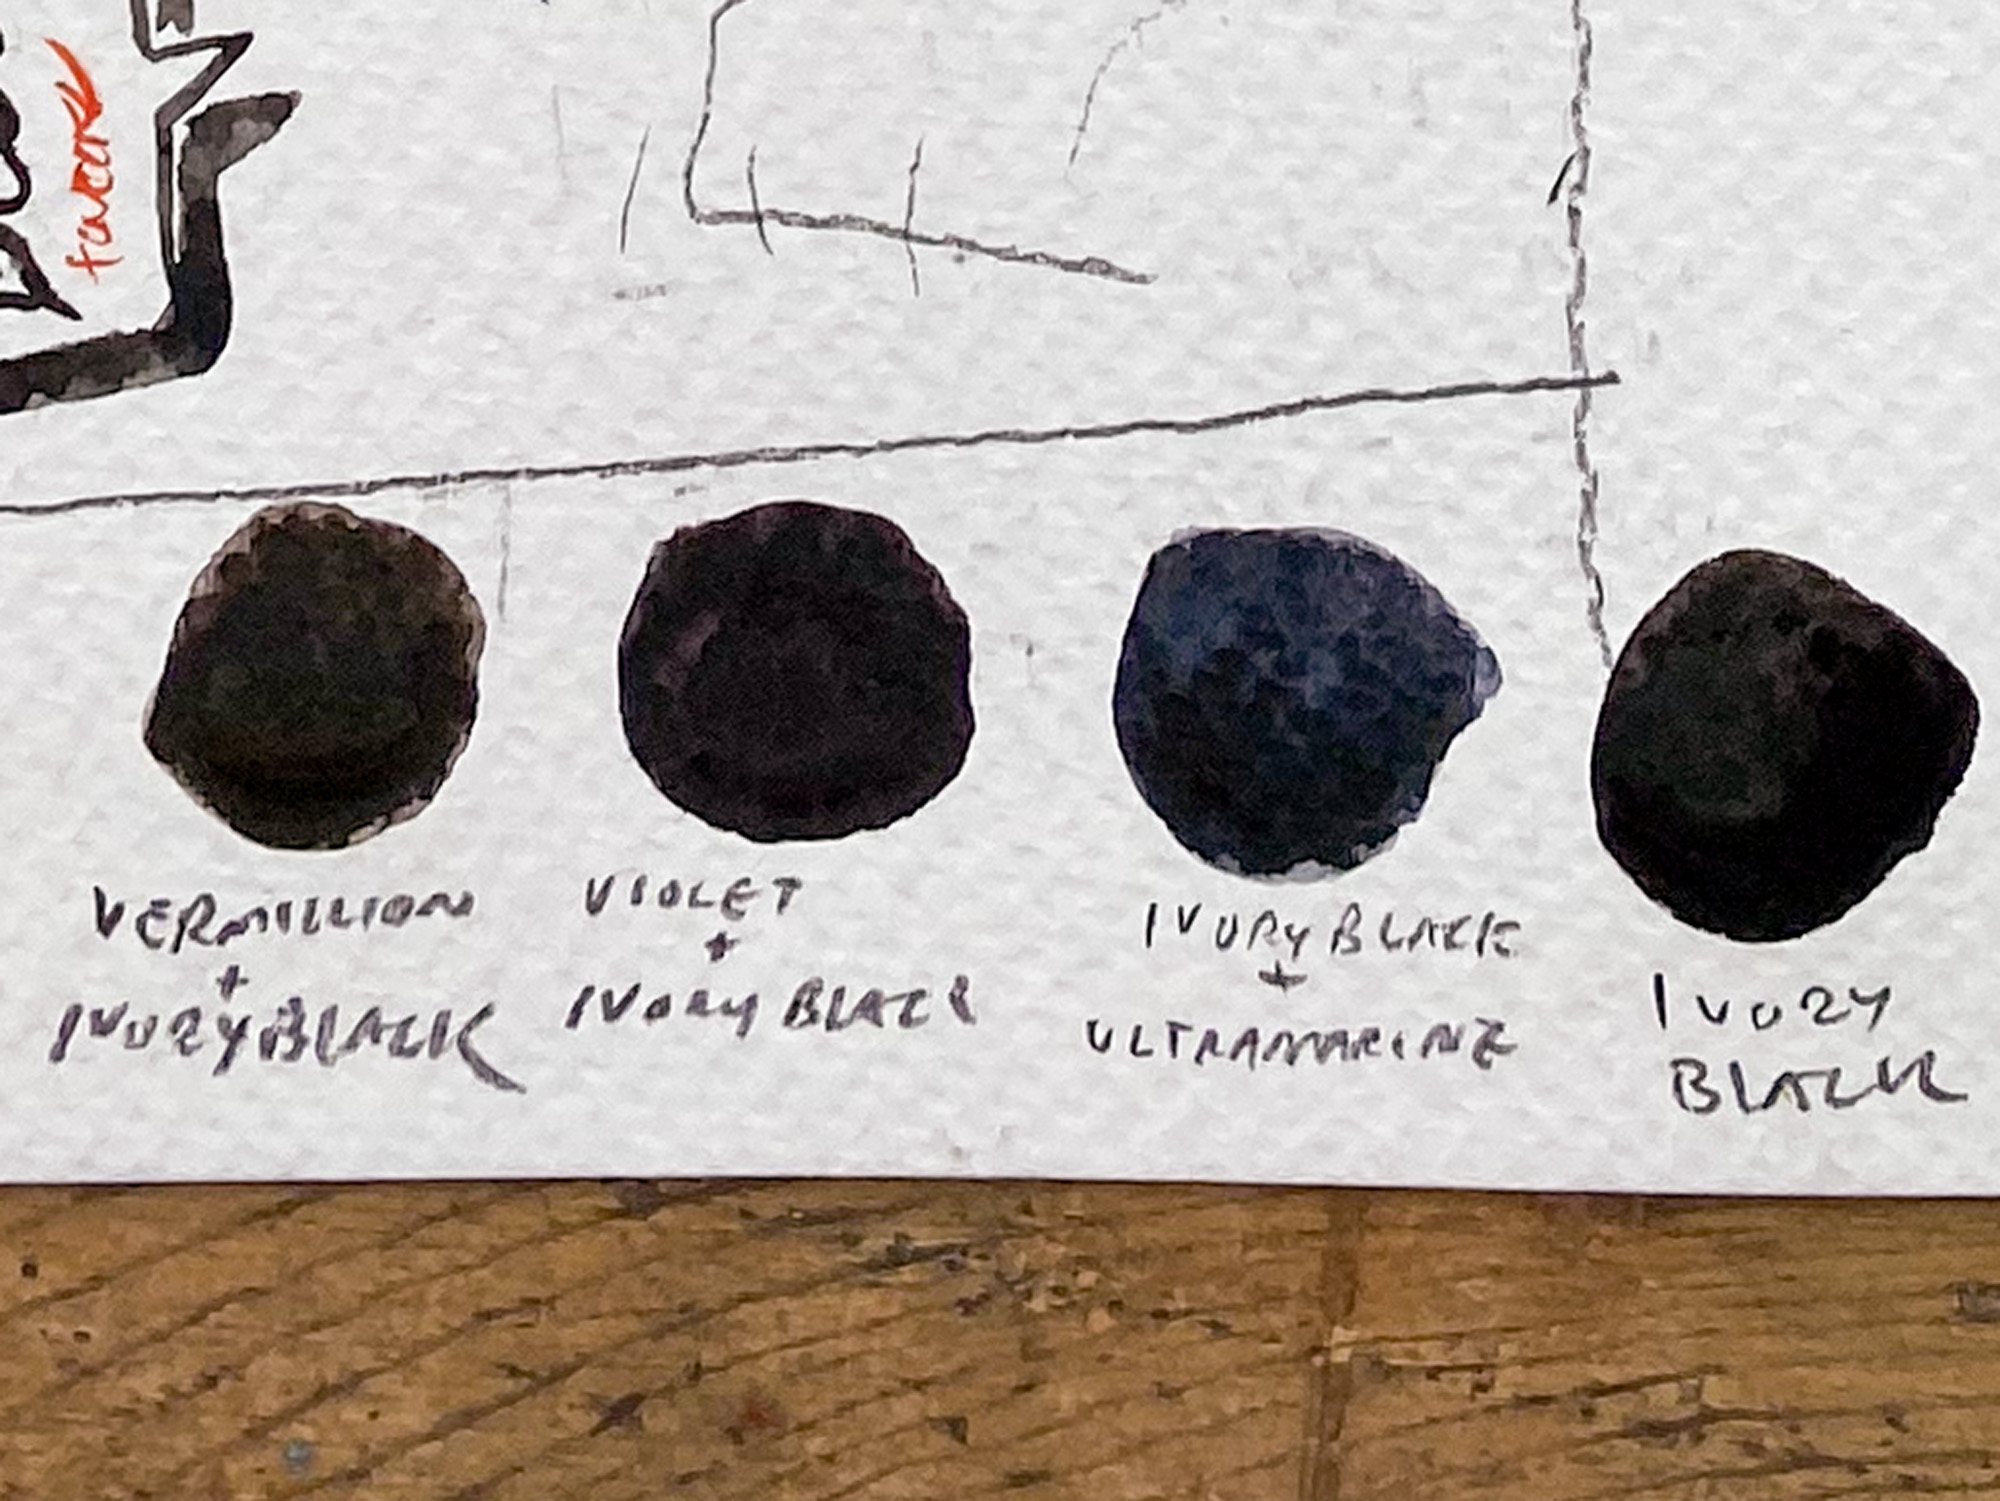 VERMILLION
+
IVORY BLACK
VIOLET
+
IVORY BLACK
IVORY BLACK
+
ULTRAMARINE
IVORY
BLACK